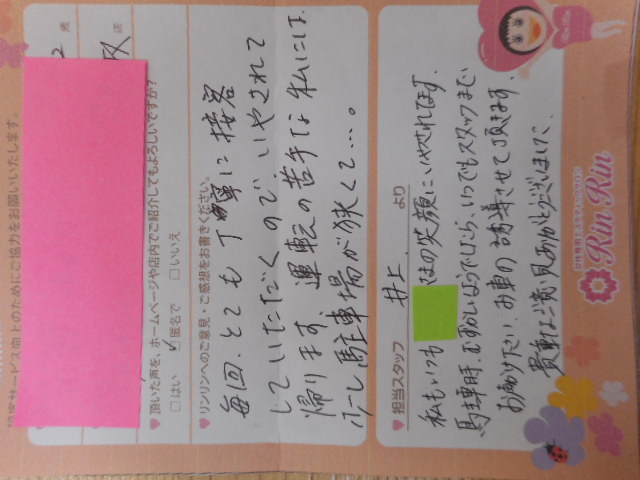 歳
店
サービス向上のためにご協力をお願いいたします。
頂いた声を、ホームページや店内でご紹介してもよろしいですか?
□はい ☑匿名で □いいえ
リンリンへのご意見・ご感想をお書きください。
毎回、とても丁寧に接客
していただくのでいやされて
帰ります。運転の苦手な私には、
少ーし駐車場が狭くて…。
担当スタッフ 井上 より
私もいつも さまの笑顔にいやされてます。
駐車時、むずかしいようでしたら、いつでもスタッフまで
お声かけ下さい。お車の誘導させて頂きます。
貴重なご意見ありがとうございました。
Rin Rin